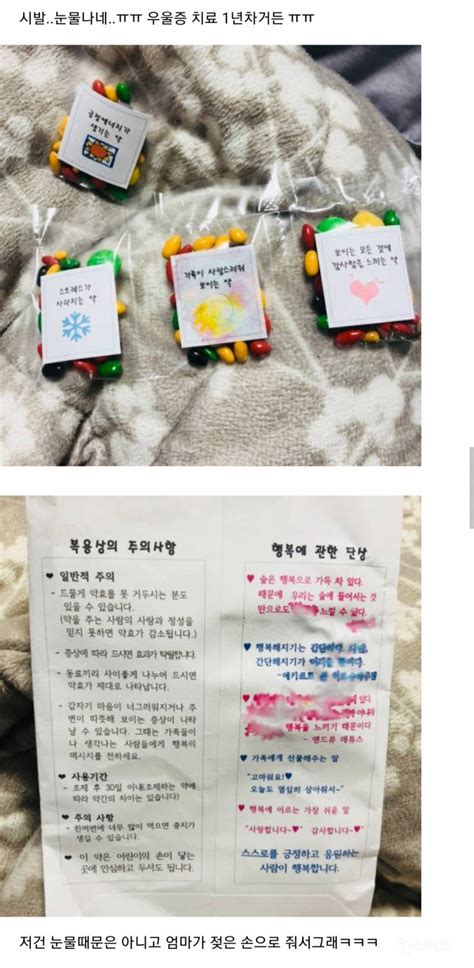 시발..눈물나네..ㅠㅠ 우울증 치료 1년차거든 ㅠㅠ
긍정에너지가
생기는 약
스트레스가
사라지는 약
가족이 사랑스러워
보이는 약
보이는 모든 것에
감사함을 느끼는 약
복용상의 주의사항
♥ 일반적 주의
- 드물게 약효를 못 거두시는 분도
있을 수 있습니다.
(약을 주는 사람의 사랑과 정성을
믿지 못하면 약효가 감소됩니다.)
- 증상에 따라 드시면 효과가 탁월합니다.
- 동료끼리 사이좋게 나누어 드시면
약효가 제대로 나타납니다.
- 갑자기 마음이 너그러워지거나 주
변이 따뜻해 보이는 증상이 나타
날 수 있습니다. 그때는 가족들이
나 생각나는 사람들에게 행복의
메시지를 전하세요.
♥ 사용기간
- 조제 후 30일 이내(조제하는 약에
따라 약간의 차이는 있습니다)
♥ 주의 사항
- 한꺼번에 너무 많이 먹으면 충치가
생길 수 있습니다.
♥ 이 약은 어린이의 손이 닿는
곳에 안심하고 두셔도 됩니다.
행복에 관한 단상
♥ 숲은 행복으로 가득 차 있다.
때문에 우리는 숲에 들어서는 것
만으로도 느낄 수 있다.
♥ 행복해지기는 간단하다. 다만,
간단해지기가
-에키르트
있다.
행복을 느끼기 때문이다
- 앤드류 매튜스
♥ 가족에게 선물해주는 말
"고마워요!♥
오늘도 열심히 살아줘서~"
♥ 행복에 이르는 가장 쉬운 말
"사랑합니다~♥ 감사합니다~"
스스로를 긍정하고 응원하는
사람이 행복합니다.
저건 눈물때문은 아니고 엄마가 젖은 손으로 줘서그래ㅋㅋㅋ